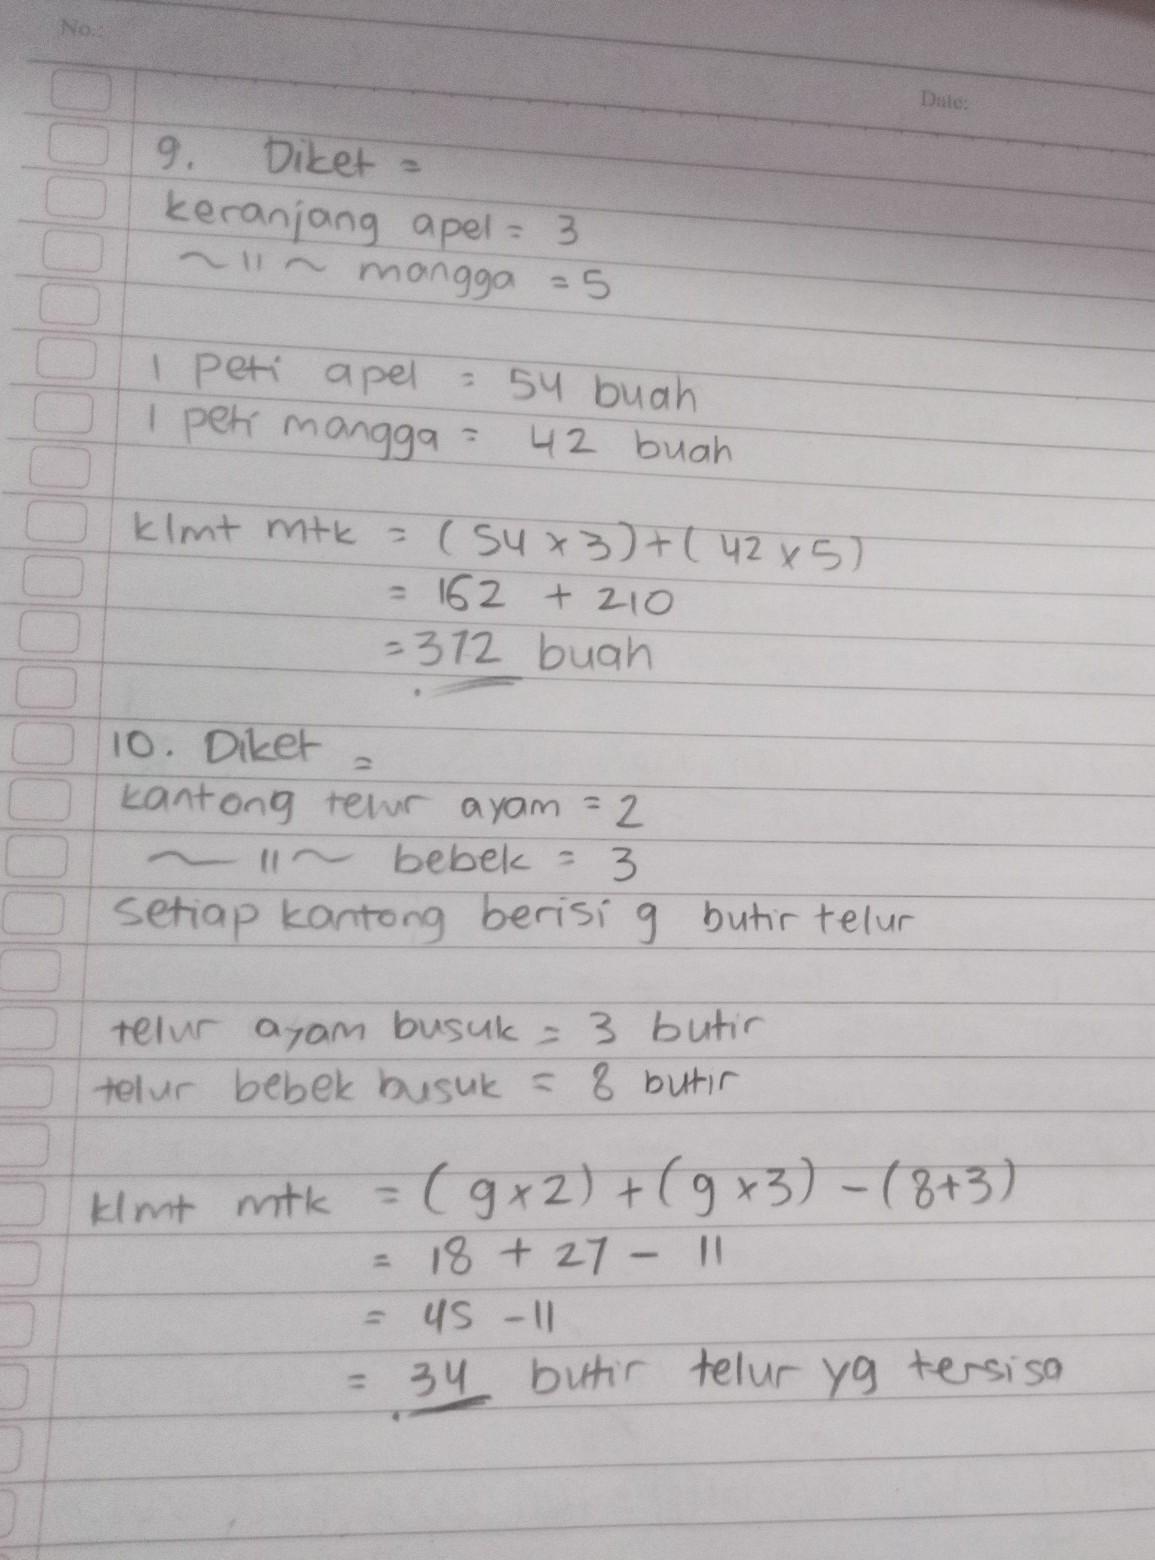 No.:
Date:
9. Diket =
keranjang apel = 3
~ 11 ~ mangga = 5
1 peti apel = 54 buah
1 peti mangga = 42 buah
klmt mtk = (54 x 3) + (42 x 5)
= 162 + 210
= 372 buah
10. Diket =
kantong telur ayam = 2
~ 11 ~ bebek = 3
setiap kantong berisi 9 butir telur
telur ayam busuk = 3 butir
telur bebek busuk = 8 butir
klmt mtk = (9 x 2) + (9 x 3) - (8+3)
= 18 + 27 - 11
= 45 - 11
= 34 butir telur yg tersisa